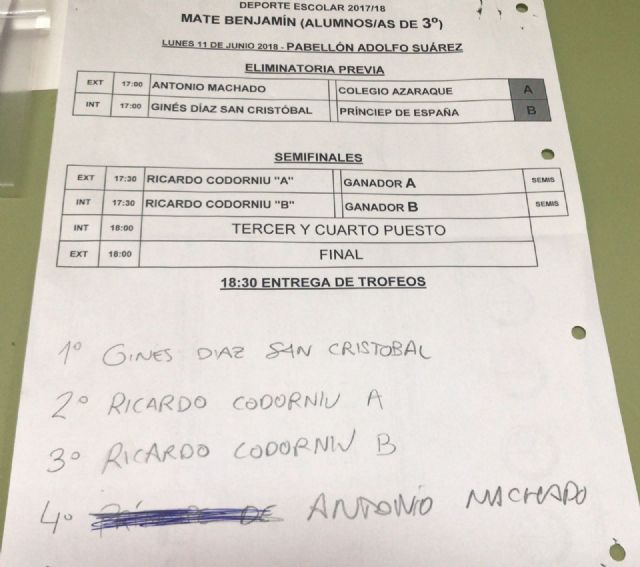 DEPORTE ESCOLAR 2017/18
MATE BENJAMÍN (ALUMNOS/AS DE 3º)
LUNES 11 DE JUNIO 2018 - PABELLÓN ADOLFO SUÁREZ
ELIMINATORIA PREVIA
EXT 17:00 ANTONIO MACHADO COLEGIO AZARAQUE A
INT 17:00 GINÉS DÍAZ SAN CRISTÓBAL PRÍNCIEP DE ESPAÑA B
SEMIFINALES
EXT 17:30 RICARDO CODORNIU "A" GANADOR A SEMIS
INT 17:30 RICARDO CODORNIU "B" GANADOR B SEMIS
INT 18:00 TERCER Y CUARTO PUESTO
EXT 18:00 FINAL
18:30 ENTREGA DE TROFEOS
1º GINES DIAZ SAN CRISTOBAL
2º RICARDO CODORNIU A
3º RICARDO CODORNIU B
4º DE ANTONIO MACHADO